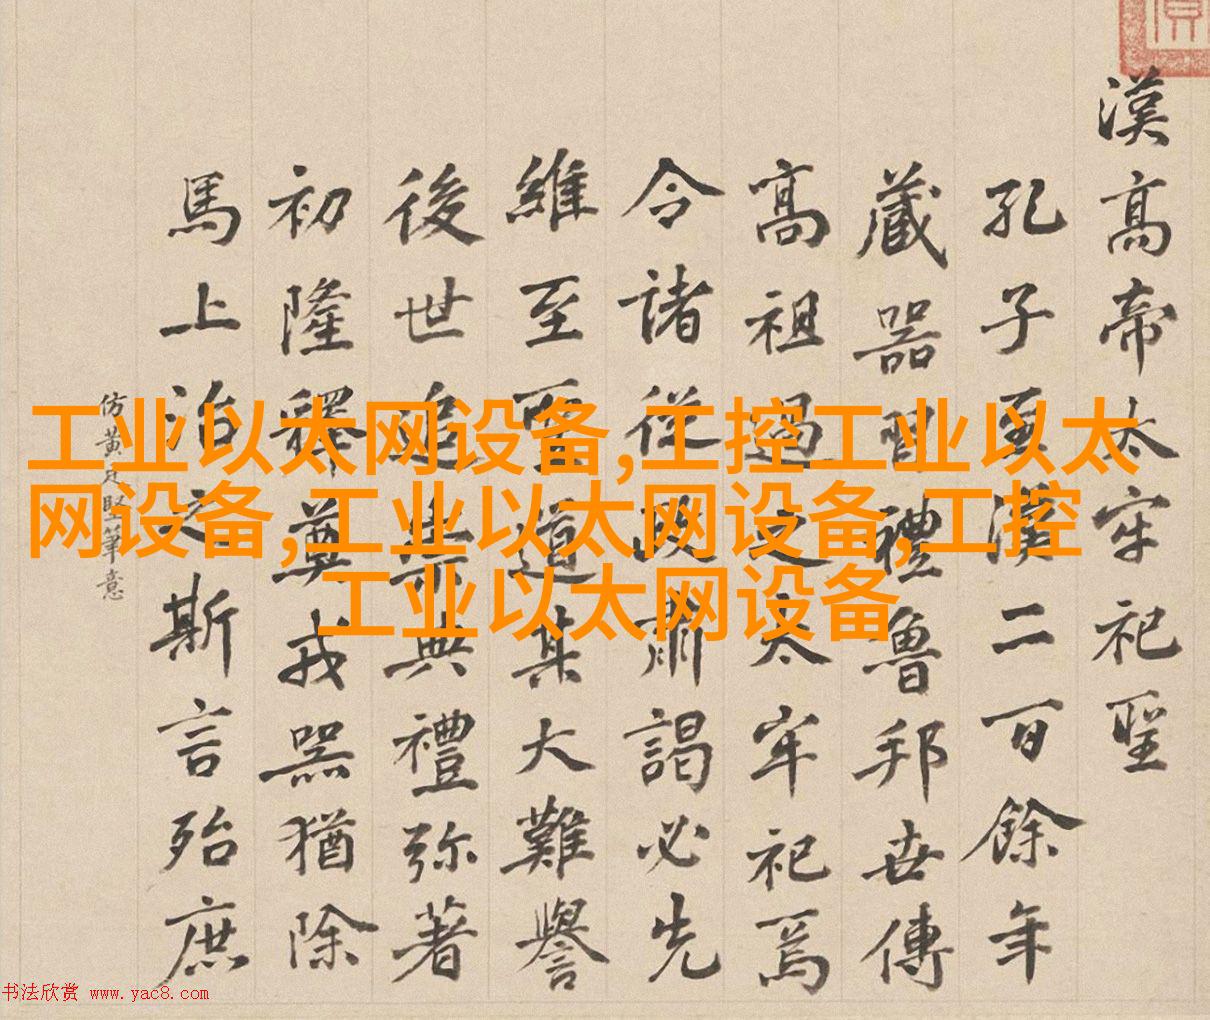 漢高帝太牢祀聖
孔子至漢二百餘年
藏器習禮魯邦世傳
高祖過之太牢祀焉
令諸從政肅謁必先
維至聖道某大難譽
後世追崇典禮弥著
初隆釋奠戎器猶除
馬上治之斯言殆庶
仿黄庭堅筆意
工业以太网设备,工控工业以太
网设备,工业以太网设备,工控
工业以太网设备
书法欣赏 www.yac8.com